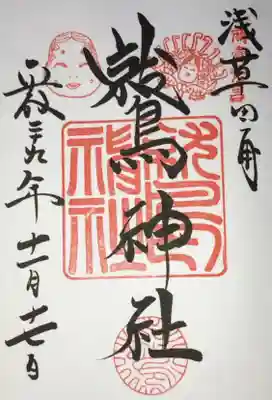 浅草田甫
鷲神社
平成二七年十一月十七日